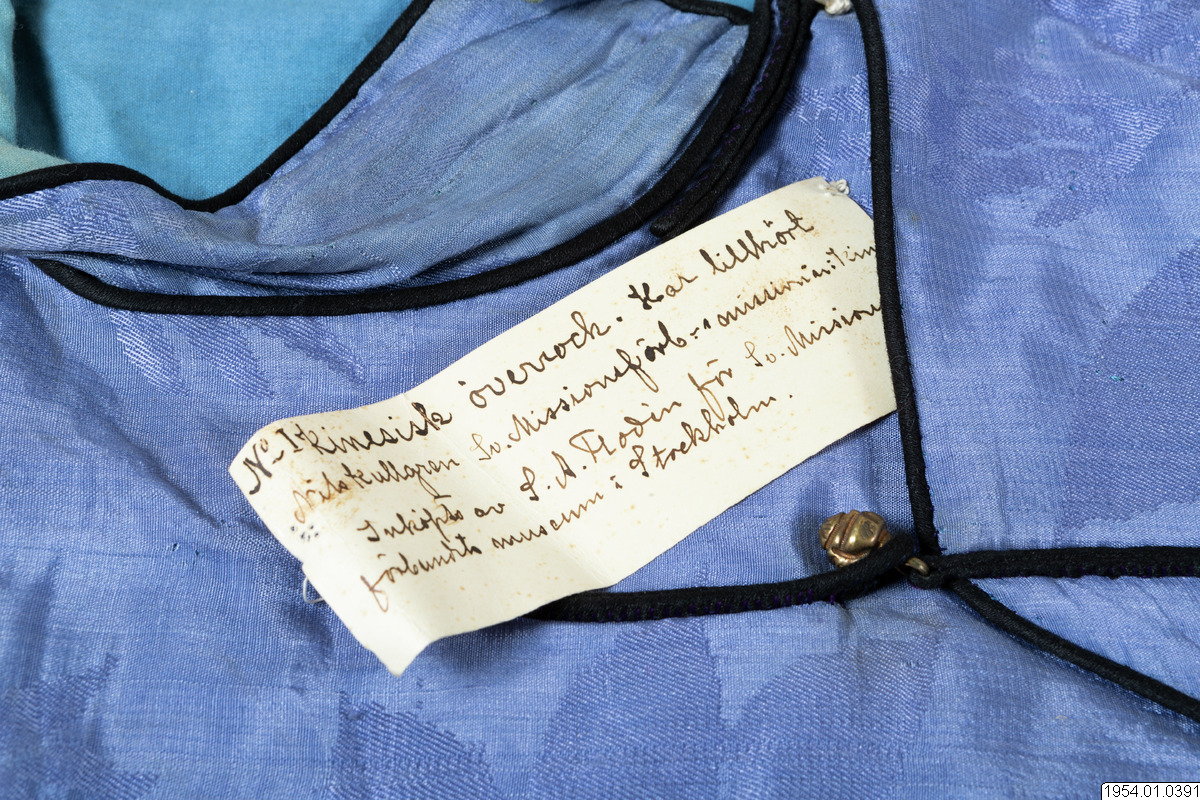 No 1 kinesisk överrock. Har tillhört
Nils Kullgren Sv. Missionsförb:s missionär i Kin
Inköpts av S. A. Flodin för Sv. Missions
förbundets museum i Stockholm.
1954.01.0391